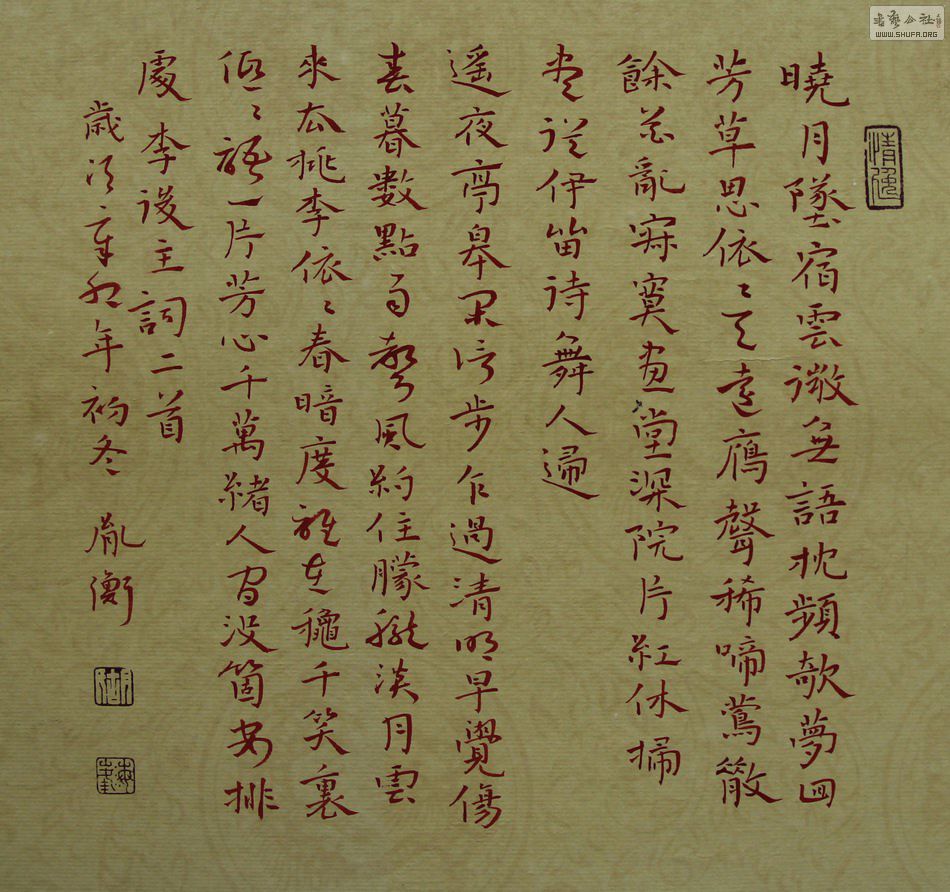 曉月墜宿雲微無語枕頻欹夢囬
芳草思依〻天遠鴈聲稀啼鶯散
餘花亂寂寞畫堂深院片紅休掃
盡從伊留待舞人歸
遙夜亭皋閑信步乍過清明早覺傷
春暮數點雨聲風約住朦朧淡月雲
來去桃李依〻春暗度誰在穐千笑裏
低〻語一片芳心千萬緒人間沒箇安排
處李後主詞二首
歲次辛卯年初冬 胤衡
書藝公社
WWW.SHUFA.ORG